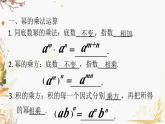 一、幂的乘法运算
1. 同底数幂的乘法：底数 不变 ，指数 相加 .
aᵐ·aⁿ=aᵐ⁺ⁿ
2. 幂的乘方：底数 不变 ，指数 相乘 .
(aᵐ)ⁿ=aᵐⁿ
3. 积的乘方：积的每一个因式分别 乘方 ，再把所得
的 幂相乘 .
(ab)ⁿ=aⁿbⁿ